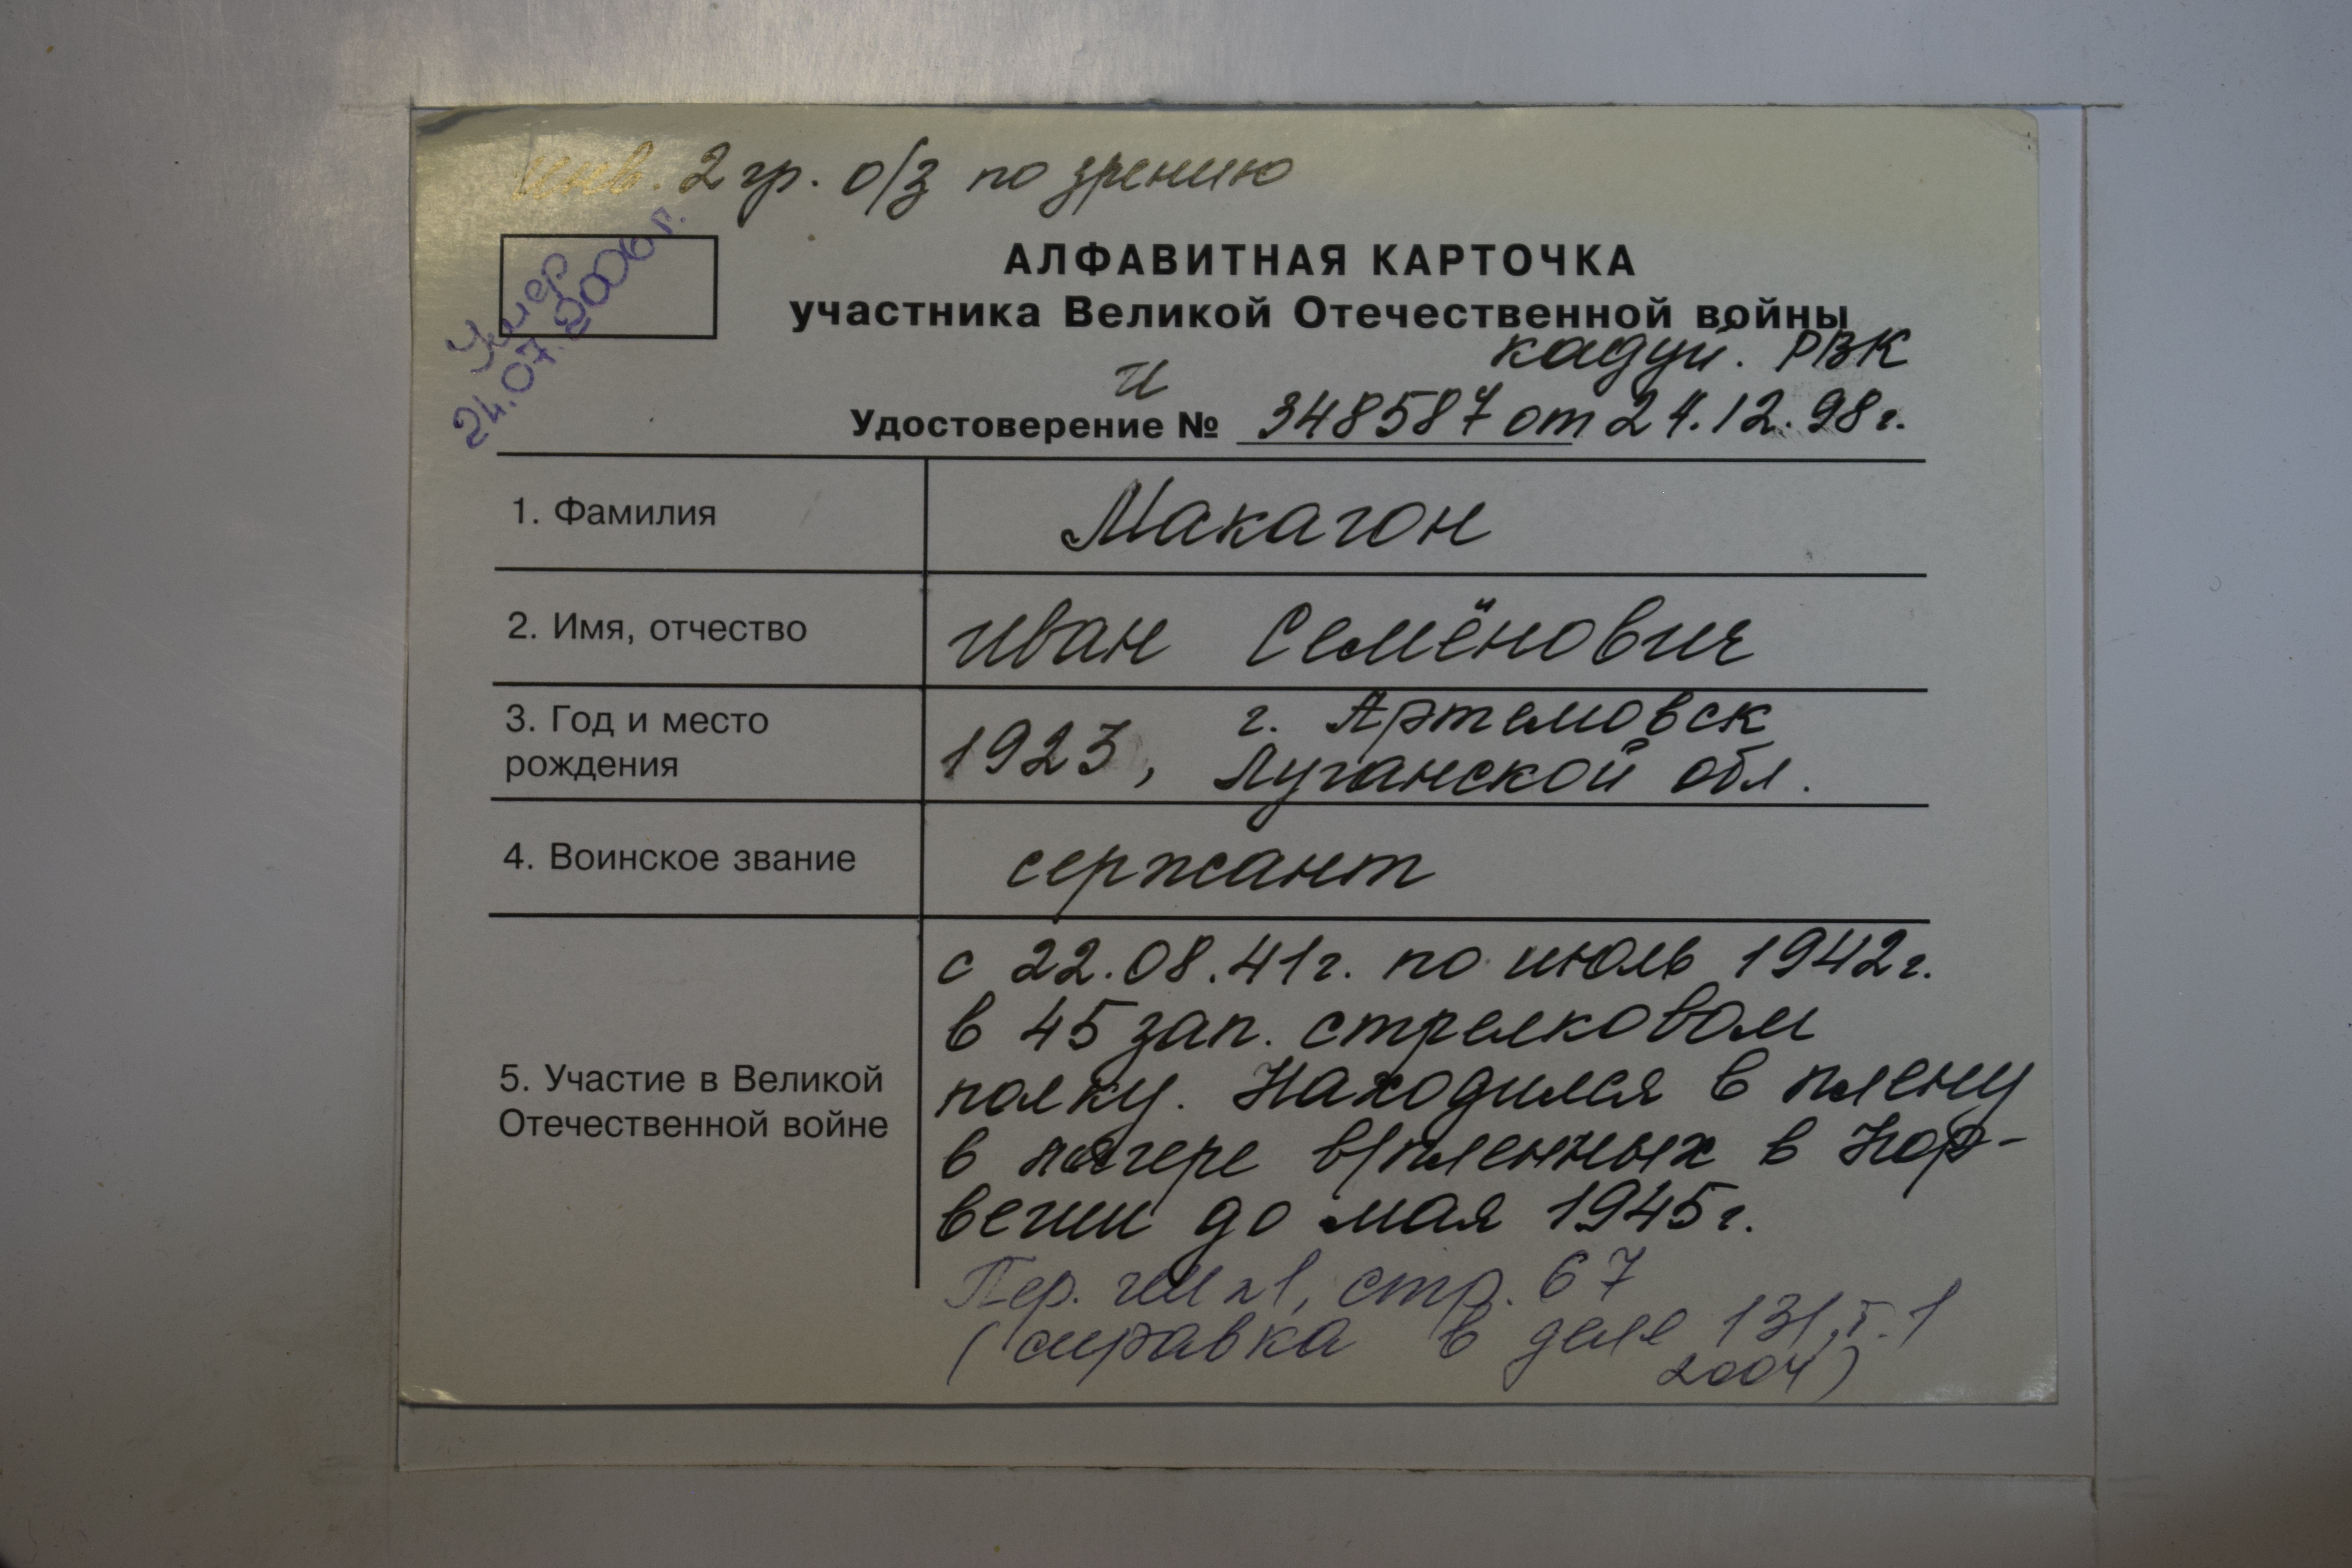 инв. 2 гр. о/з по зрению
Умер
24.07.2006 г.
АЛФАВИТНАЯ КАРТОЧКА
участника Великой Отечественной войны
кадуй. РВК
и
Удостоверение № 348587 от 24.12.98г.
1. Фамилия
Макагон
2. Имя, отчество
Иван Семёнович
3. Год и место
рождения
1923, г. Артемовск
Луганской обл.
4. Воинское звание
сержант
5. Участие в Великой
Отечественной войне
с 22.08.41г. по июль 1942г.
в 45 зап. стрелковом
полку. Находился в плену
в лагере в/пленных в Нор-
вегии до мая 1945г.
Пер. стр. 67
(справка в деле 131, т. 1
2004)